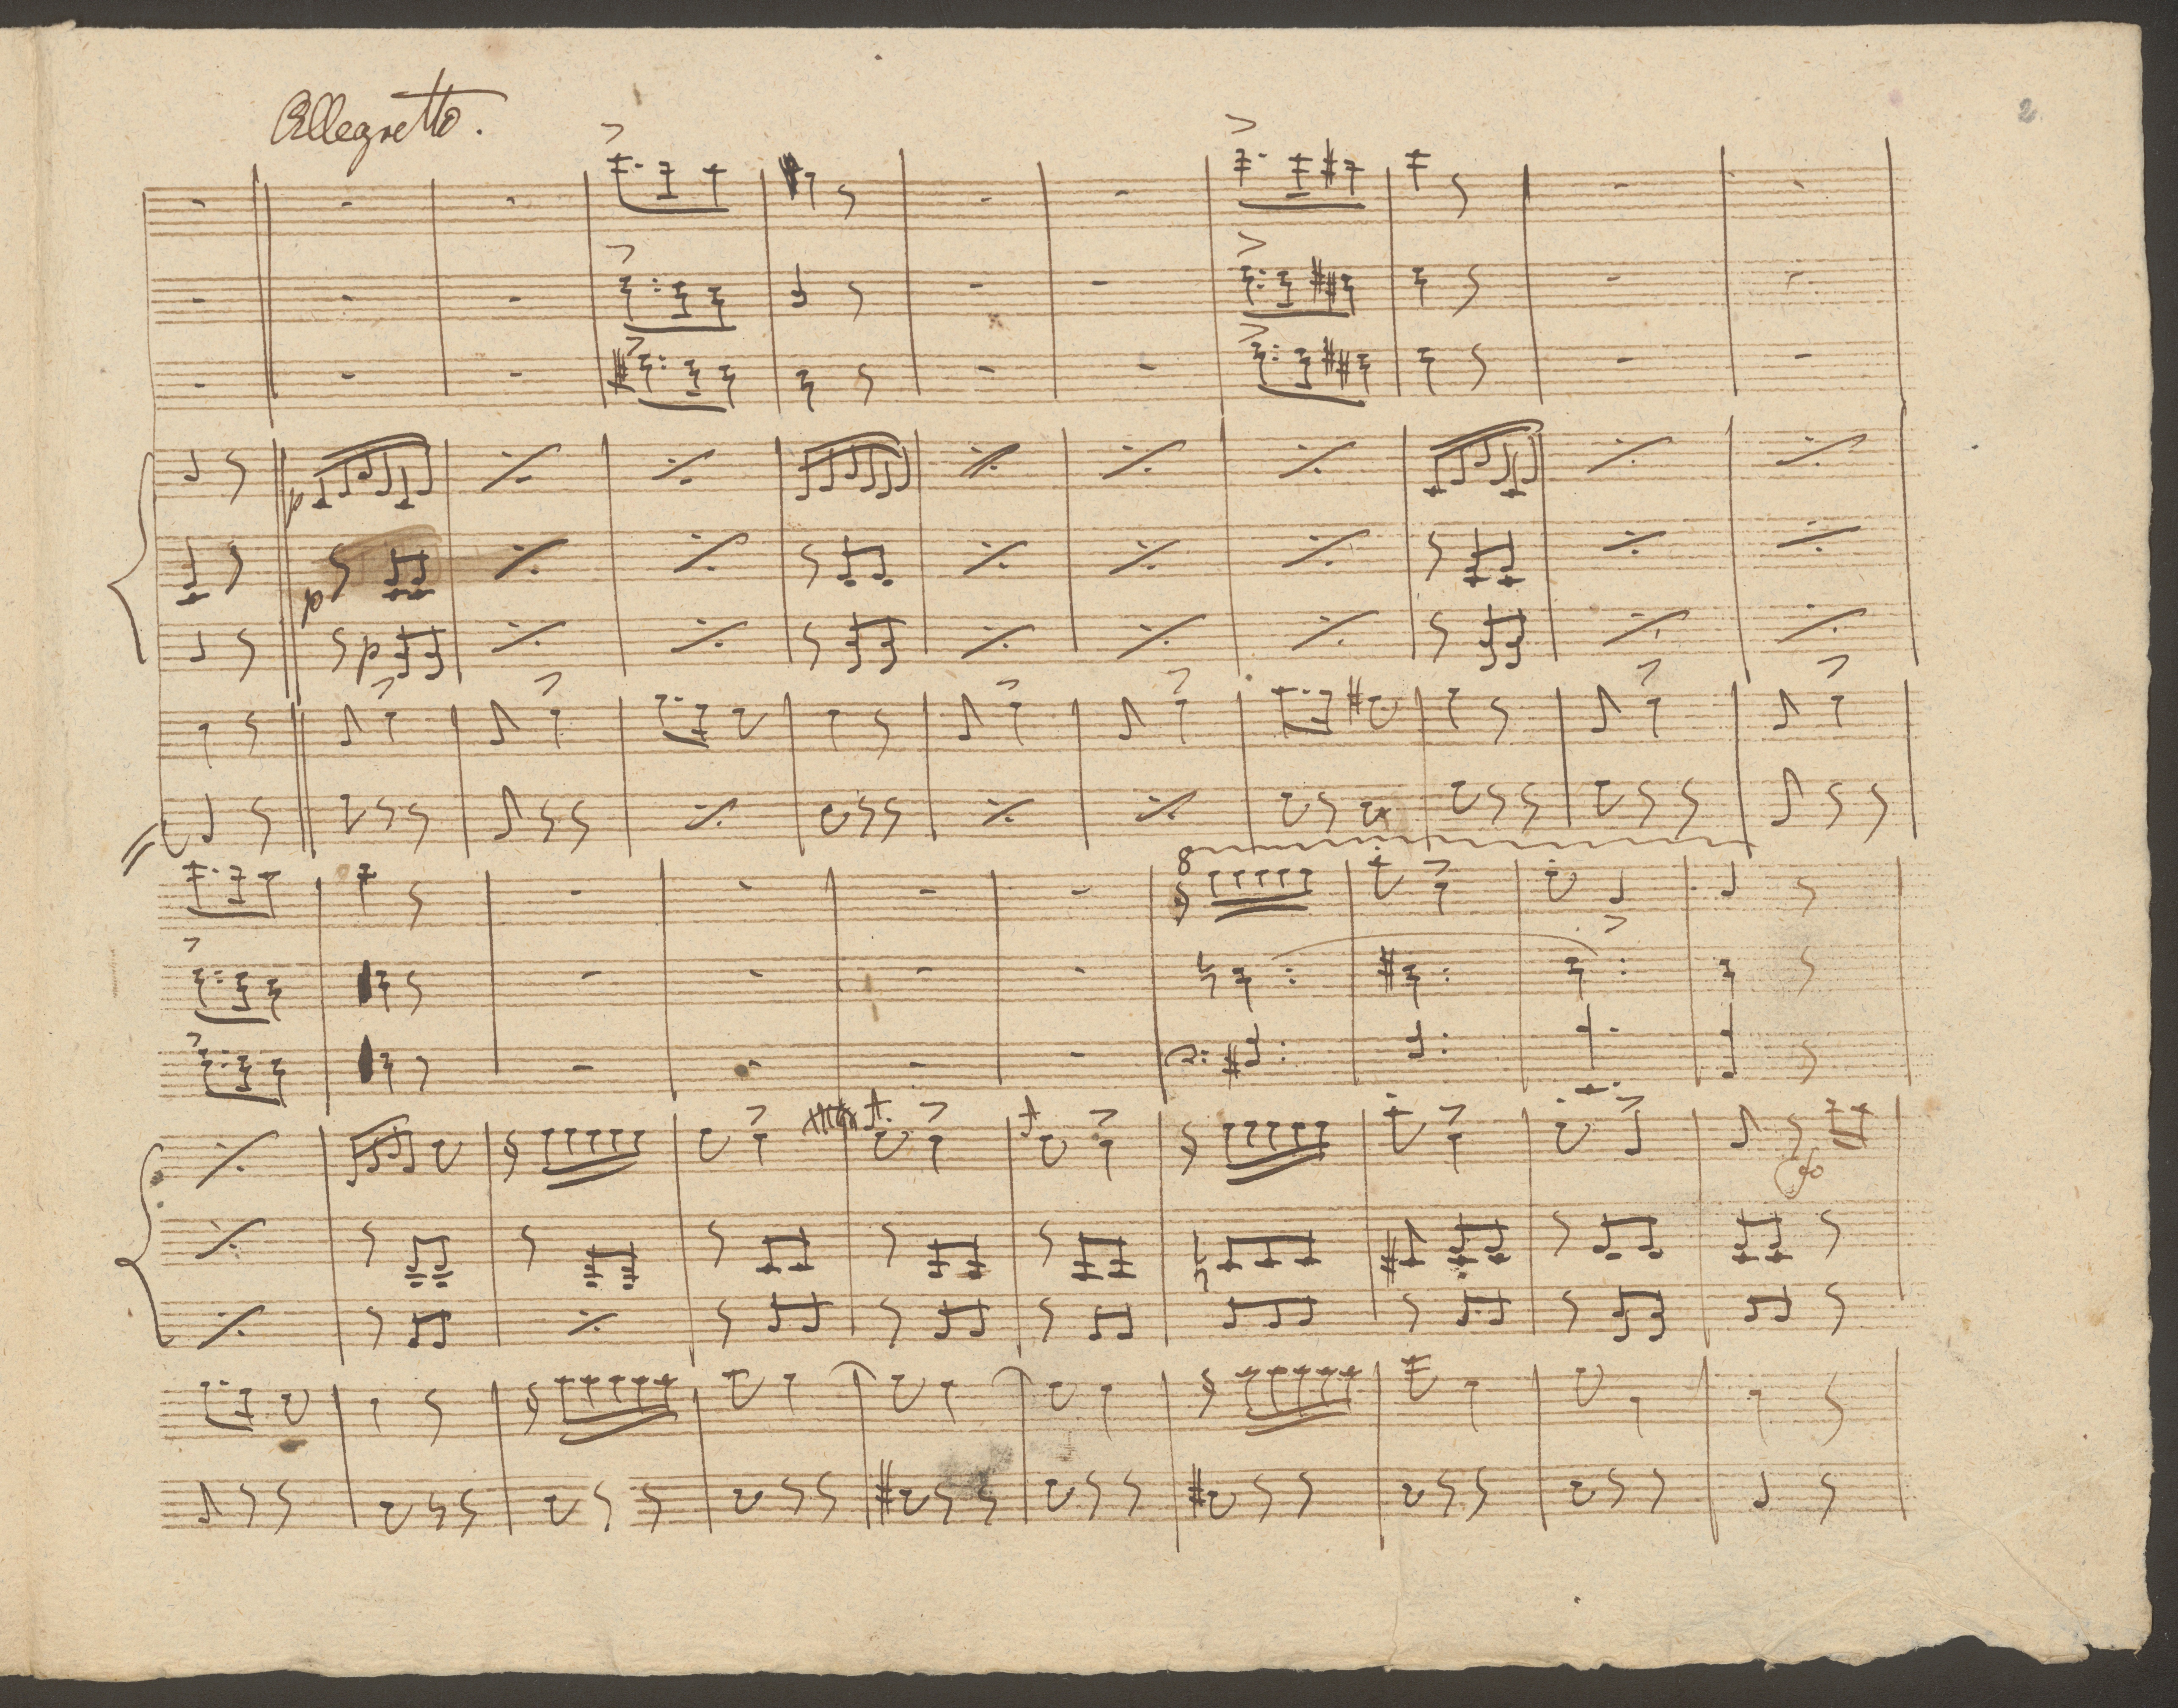 Allegretto.
2
p
p
p
8